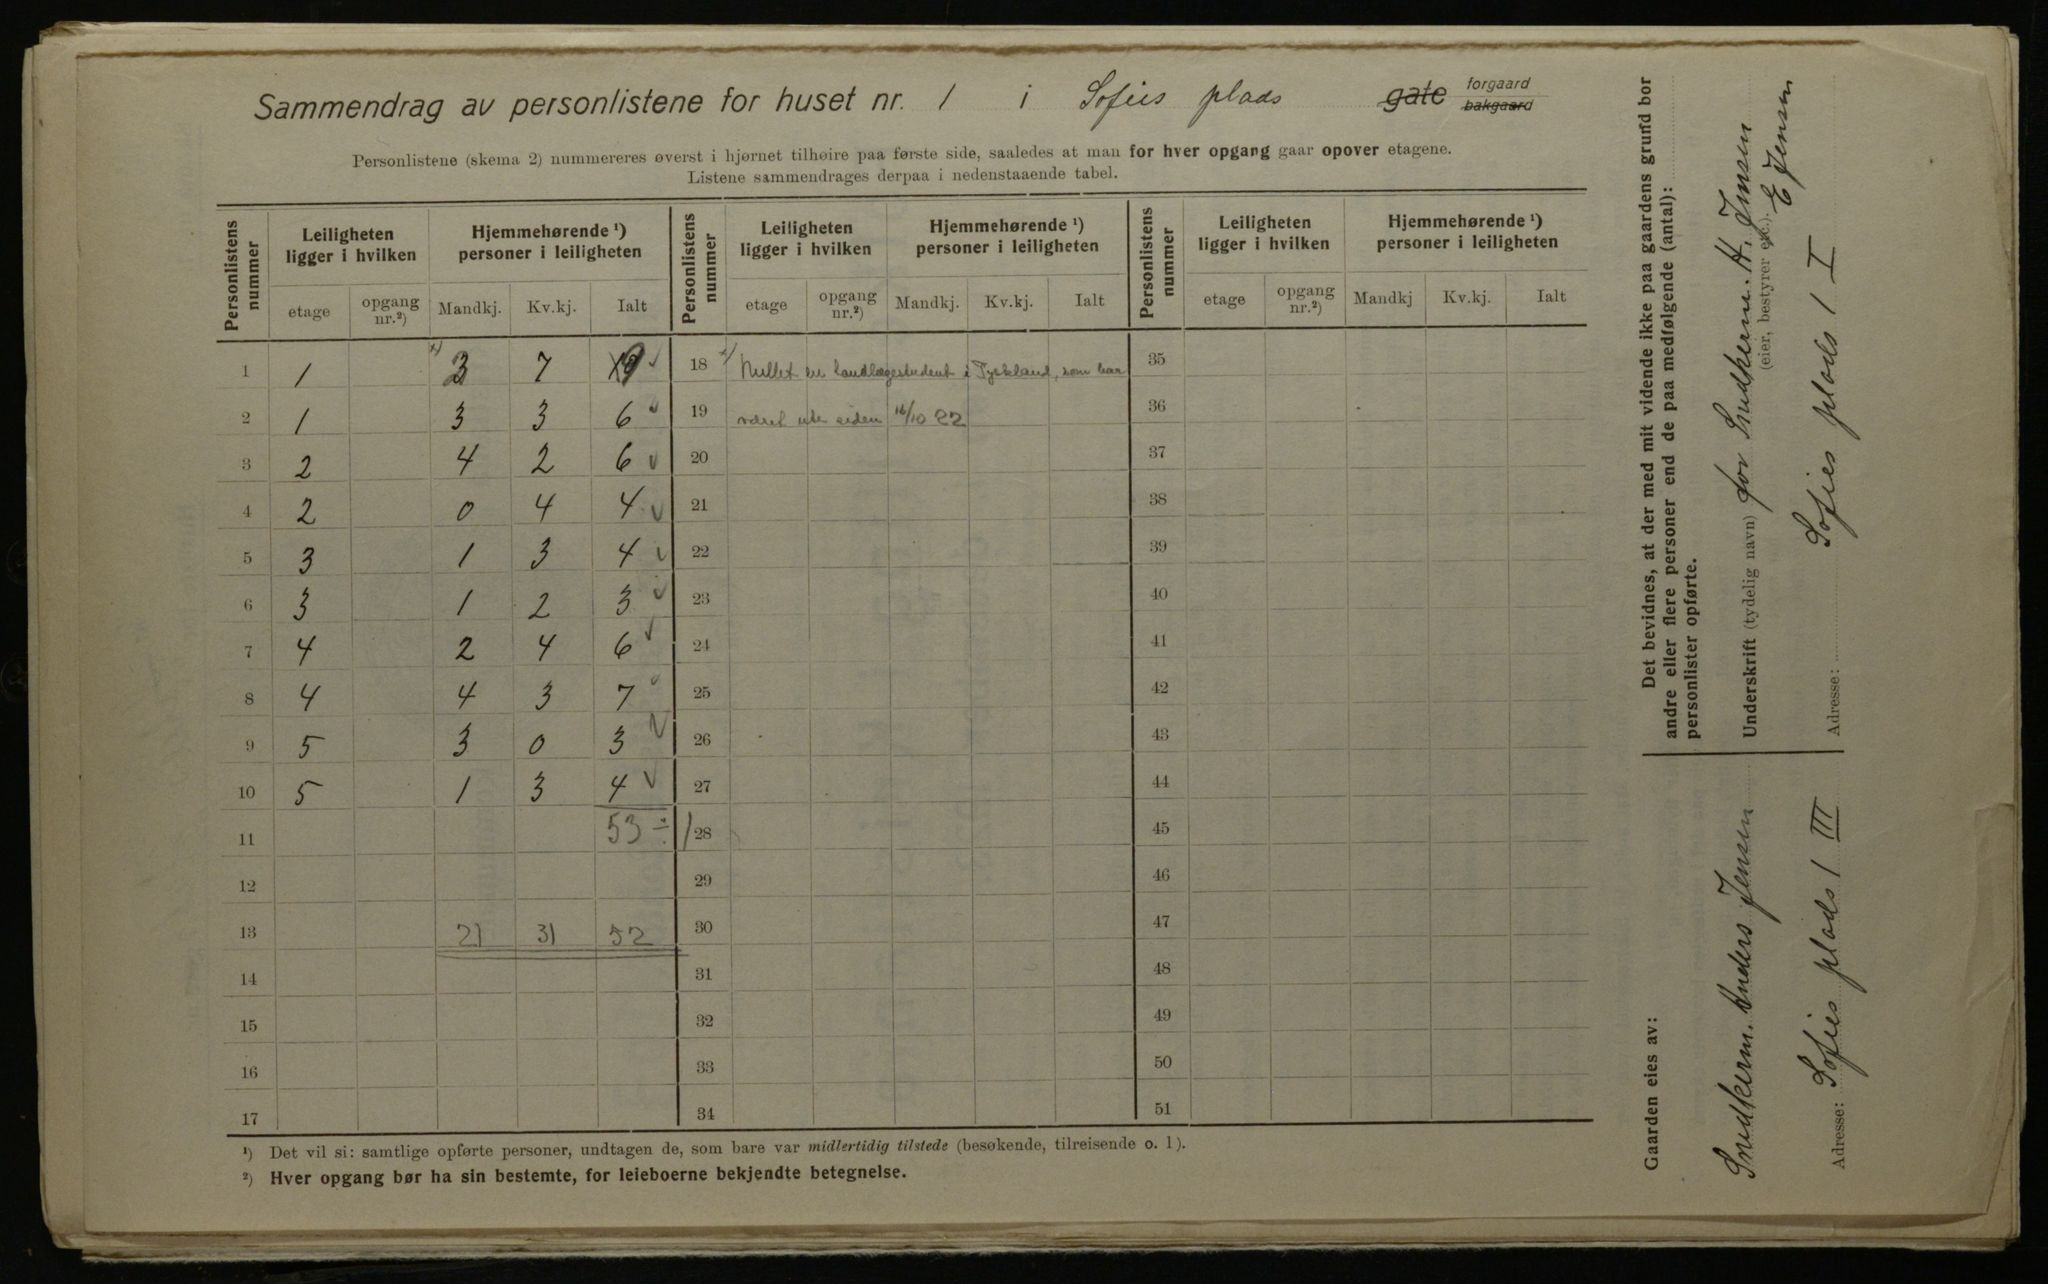 Sammendrag av personlistene for huset nr. 1 i Sofies plads gate forgaard bakgaard
Personlistene (skema 2) nummereres øverst i hjørnet tilhøire paa første side, saaledes at man for hver opgang gaar opover etagene.
Listene sammendrages derpaa i nedenstaaende tabel.
Personlistens nummer | Leiligheten ligger i hvilken | Hjemmehørende ¹) personer i leiligheten | Personlistens nummer | Leiligheten ligger i hvilken | Hjemmehørende ¹) personer i leiligheten | Personlistens nummer | Leiligheten ligger i hvilken | Hjemmehørende ¹) personer i leiligheten
etage | opgang nr.²) | Mandkj. | Kv.kj. | Ialt | etage | opgang nr.²) | Mandkj. | Kv.kj. | Ialt | etage | opgang nr.²) | Mandkj | Kv.kj. | Ialt
1 | 1 | x) | 7 | 9 | 18 | x) Nullet en tandlægestudent i Tyskland, som har | 35
2 | 1 | 3 | 3 | 6 | 19 | været ute siden 16/10 22 | 36
3 | 2 | 4 | 2 | 6 | 20 | 37
4 | 2 | 0 | 4 | 4 | 21 | 38
5 | 3 | 1 | 3 | 4 | 22 | 39
6 | 3 | 1 | 2 | 3 | 23 | 40
7 | 4 | 2 | 4 | 6 | 24 | 41
8 | 4 | 4 | 3 | 7 | 25 | 42
9 | 5 | 3 | 0 | 3 | 26 | 43
10 | 5 | 1 | 3 | 4 | 27 | 44
11 | 53 ÷ 1 | 28 | 45
12 | 29 | 46
13 | 21 | 31 | 52 | 30 | 47
14 | 31 | 48
15 | 32 | 49
16 | 33 | 50
17 | 34 | 51
¹) Det vil si: samtlige opførte personer, undtagen de, som bare var midlertidig tilstede (besøkende, tilreisende o. l).
²) Hver opgang bør ha sin bestemte, for leieboerne bekjendte betegnelse.
Det bevidnes, at der med mit vidende ikke paa gaardens grund bor
andre eller flere personer end de paa medfølgende (antal):
personlister opførte.
Underskrift (tydelig navn) for Snedkerm. H. Jensen
(eier, bestyrer etc.). E Jensen
Adresse: Sofies plads 1 I
Gaarden eies av:
Snedkerm. Anders Jensen
Adresse: Sofies plads 1 III